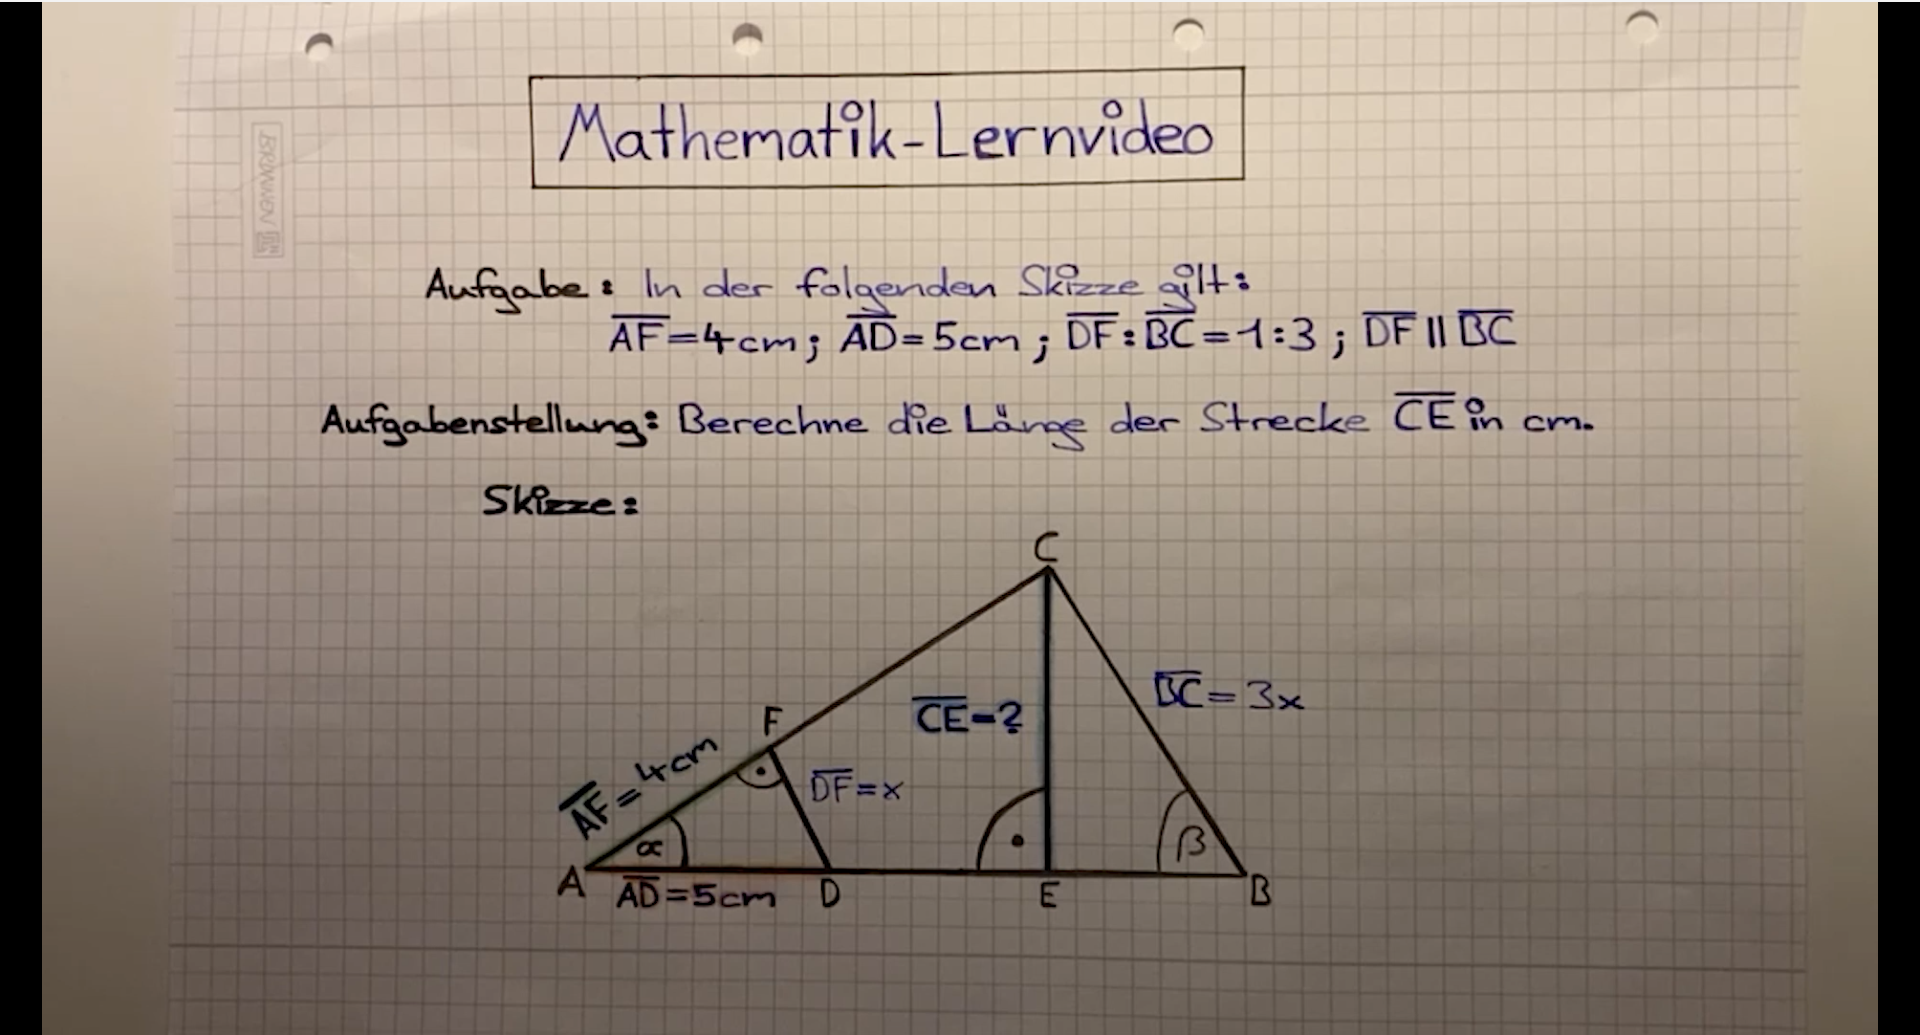 Mathematik-Lernvideo
BRUNNEN
Aufgabe: In der folgenden Skizze gilt:
A̅F̅=4cm; A̅D̅=5cm; D̅F̅:B̅C̅=1:3; D̅F̅ || B̅C̅
Aufgabenstellung: Berechne die Länge der Strecke C̅E̅ in cm.
Skizze:
C
B̅C̅=3x
F
C̅E̅=?
A̅F̅=4cm
D̅F̅=x
α
β
A
A̅D̅=5cm
D
E
B